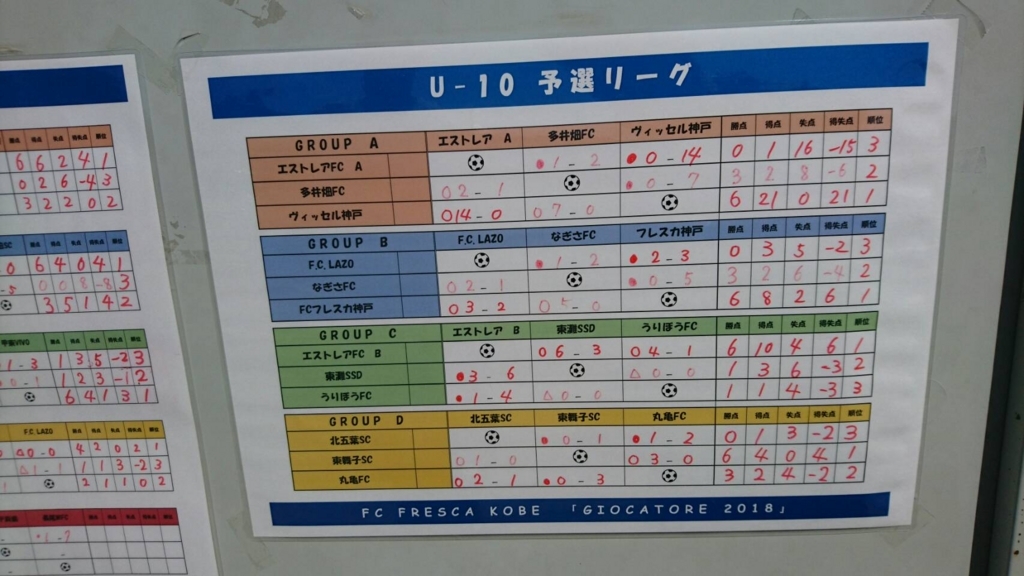 U-10 予選リーグ
GROUP A エストレア A 多井畑FC ヴィッセル神戸 勝点 得点 失点 得失点 順位
エストレアFC A ●1-2 ●0-14 0 1 16 -15 3
多井畑FC 02-1 ●0-7 3 2 8 -6 2
ヴィッセル神戸 014-0 07-0 6 21 0 21 1
GROUP B F.C. LAZO なぎさFC フレスカ神戸 勝点 得点 失点 得失点 順位
F.C. LAZO ●1-2 ●2-3 0 3 5 -2 3
なぎさFC 02-1 ●0-5 3 2 6 -4 2
FCフレスカ神戸 03-2 05-0 6 8 2 6 1
GROUP C エストレア B 東灘SSD うりぼうFC 勝点 得点 失点 得失点 順位
エストレアFC B 06-3 04-1 6 10 4 6 1
東灘SSD ●3-6 △0-0 1 3 6 -3 2
うりぼうFC ●1-4 △0-0 1 1 4 -3 3
GROUP D 北五葉SC 東舞子SC 丸亀FC 勝点 得点 失点 得失点 順位
北五葉SC ●0-1 ●1-2 0 1 3 -2 3
東舞子SC 01-0 03-0 6 4 0 4 1
丸亀FC 02-1 ●0-3 3 2 4 -2 2
FC FRESCA KOBE 「GIOCATORE 2018」
6 6 2 4 1
0 2 6 -4 3
3 2 2 0 2
6 4 0 4 1
0 0 8 -8 3
3 5 1 4 2
1-3 1 3 5 -2 3
1 2 3 -1 2
6 4 1 3 1
F.C. LAZO 勝点 得点 失点 得失点 順位
△0-0 4 2 0 2 1
△1-1 1 1 3 -2 3
2 1 1 0 2